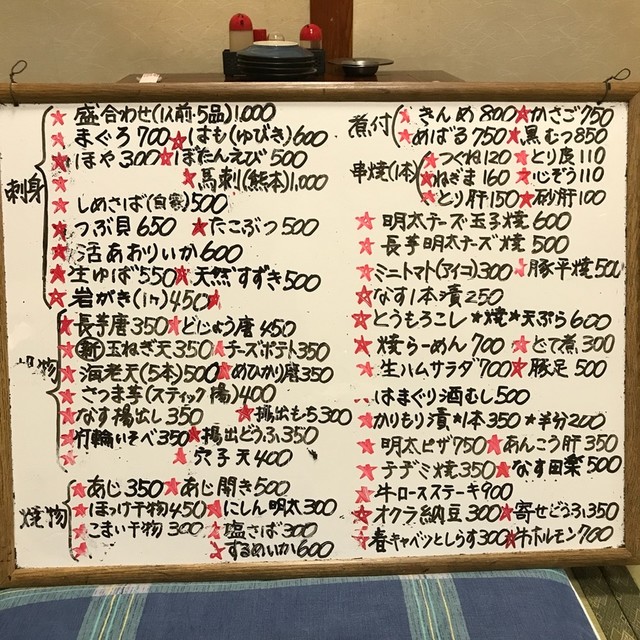 刺身
★ 盛合わせ(1人前・5品)1,000
★ まぐろ 700 ★ はも(ゆびき)600
★ ほや 300 ★ ぼたんえび 500
★ 馬刺(熊本)1,000
★ しめさば(自家製)500
★ つぶ貝 650 ★ たこぶつ 500
★ 活あおりいか 600
★ 生ゆば 550 ★ 天然すずき 500
★ 岩がき(1ヶ)450
揚物
★ 長芋磨 350 ★ どじょう磨 450
★ ㊟玉ねぎ天 350 ★ チーズポテト 350
★ 海老天(5本)500 ★ めひかり磨 350
★ さつま芋(スティック揚)400
★ なす揚出し 350 ★ 揚出もち 300
★ 竹輪いそべ 350 ★ 揚出どうふ 350
★ 穴子天 400
焼物
★ あじ 350 ★ あじ開き 500
★ ほっけ干物 450 ★ にしん明太 300
★ こまい干物 300 ★ 塩さば 300
★ するめいか 600
煮付
★ きんめ 800 ★ かさご 750
★ めばる 750 ★ 黒むつ 850
串焼(1本)
★ つくね 120 ★ とり皮 110
★ ねぎま 160 ★ 心ぞう 110
★ とり肝 150 ★ 砂肝 100
★ 明太チーズ玉子焼 600
★ 長芋明太チーズ焼 500
★ ミニトマト(アイコ)300 ★ 豚平焼 500
★ なす1本漬 250
★ とうもろこし ★焼★天ぷら 600
★ 焼らーめん 700 ★ どて煮 300
★ 生ハムサラダ 700 ★ 豚足 500
★ はまぐり酒むし 500
★ かりもり漬 ★1本 350 ★半分 200
★ 明太ピザ 750 ★ あんこう肝 350
★ チヂミ焼 350 ★ なす田楽 500
★ 牛ロースステーキ 900
★ オクラ納豆 300 ★ 寄せどうふ 350
★ 春キャベツとしらす 300 ★ 牛ホルモン 700